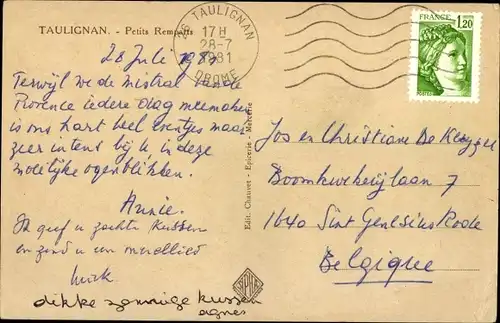 TAULIGNAN. - Petits Remparts
28 Juli 1981
Terwijl we de mistral van de
Provence iedere dag meemaken
is ons hart heel eventjes maar
zeer intens bij u in deze
moeilijke ogenblikken.
Annie.
Ik geef u zachte kussen
en zend u un
dikke zonnige kussen
agnes
Edit. Chauvet - Epicerie - Mercerie
26 TAULIGNAN
17H
28-7
1981
DROME
FRANCE
1,20
Jos en Christiane De
Boomkwekerijlaan 7
1640 Sint Genesius Rode
Belgique